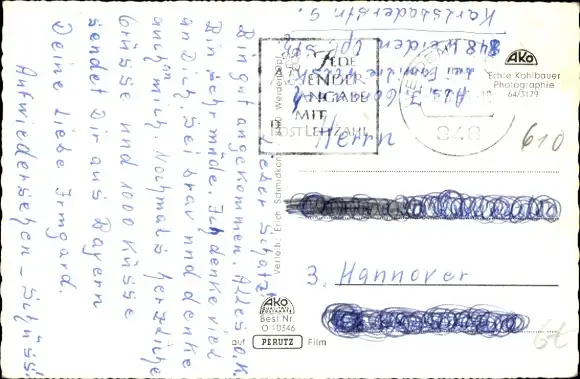 Lieber Schatz!
Bin gut angekommen. Alles o.k.
Bin sehr müde. Ich denke viel
an Dich. Sei brav und denke
auch an mich. Nochmals herzliche
Grüsse und 1000 Küsse
sendet Dir aus Bayern
Deine liebe Irmgard.
Aufwiedersehen – Tschüss
bei Familie
848 Weiden Opf.
Karlsbaderstr. 5.
JEDE
SENDER
ANGABE
MIT
POSTLEITZAHL
848
AKO
Echte Kohlbauer
Photographie
64/3179
610
Herrn
3. Hannover
Verleih: Erich Schmidkonz
AKO
Best. Nr.
O 10346
auf PERUTZ Film